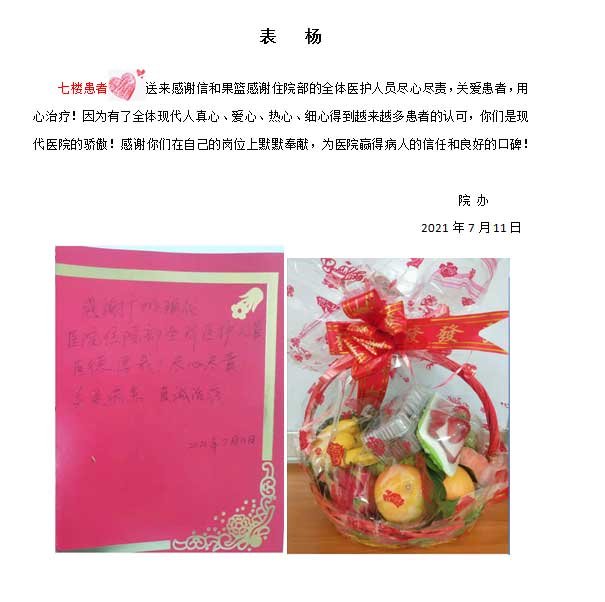 表 杨
七楼患者 送来感谢信和果篮感谢住院部的全体医护人员尽心尽责，关爱患者，用
心治疗！因为有了全体现代人真心、爱心、热心、细心得到越来越多患者的认可，你们是现
代医院的骄傲！感谢你们在自己的岗位上默默奉献，为医院赢得病人的信任和良好的口碑！
院 办
2021 年 7 月 11 日
感谢广州现代
医院住院部全体医护人员
尽心尽责
真诚治疗
2021年7月11日
發 發